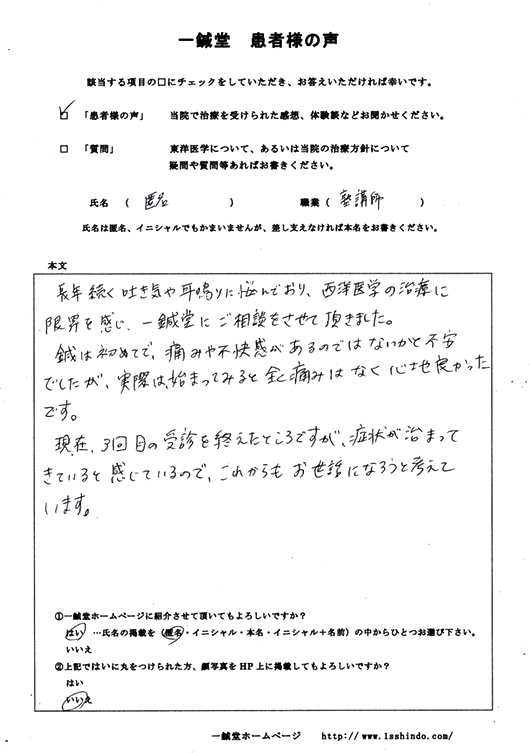 一鍼堂 患者様の声
該当する項目の□にチェックをしていただき、お答えいただければ幸いです。
☑ 「患者様の声」 当院で治療を受けられた感想、体験談などお聞かせください。
□ 「質問」 東洋医学について、あるいは当院の治療方針について
疑問や質問等あればお書きください。
氏名 ( 匿名 ) 職業 ( 塾講師 )
氏名は匿名、イニシャルでもかまいませんが、差し支えなければ本名をお書きください。
本文
長年続く吐き気や耳鳴りに悩んでおり、西洋医学の治療に
限界を感じ、一鍼堂にご相談をさせて頂きました。
鍼は初めてで、痛みや不快感があるのではないかと不安
でしたが、実際は始まってみると全く痛みはなく心地良かった
です。
現在、3回目の受診を終えたところですが、症状が治まって
きていると感じているので、これからもお世話になろうと考えて
います。
①一鍼堂ホームページに紹介させて頂いてもよろしいですか?
はい …氏名の掲載を(匿名・イニシャル・本名・イニシャル+名前)の中からひとつお選び下さい。
いいえ
②上記ではいに丸をつけられた方、顔写真をHP上に掲載してもよろしいですか?
はい
いいえ
一鍼堂ホームページ http://www.1sshindo.com/